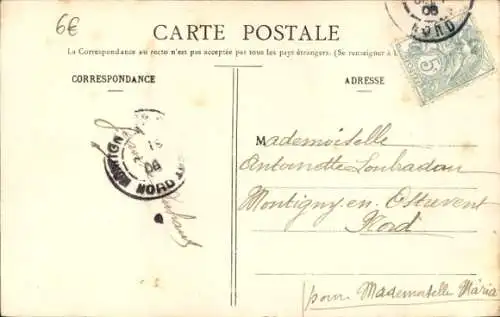 6€
CARTE POSTALE
La Correspondance au recto n'est pas acceptée par tous les pays étrangers. (Se renseigner à
CORRESPONDANCE
ADRESSE
08
NORD
5
MONTIGN
15
08
NORD
Mademoiselle
Antoinette Loubradou
Montigny en Ostrevent
Nord
pour Mademoiselle Maria